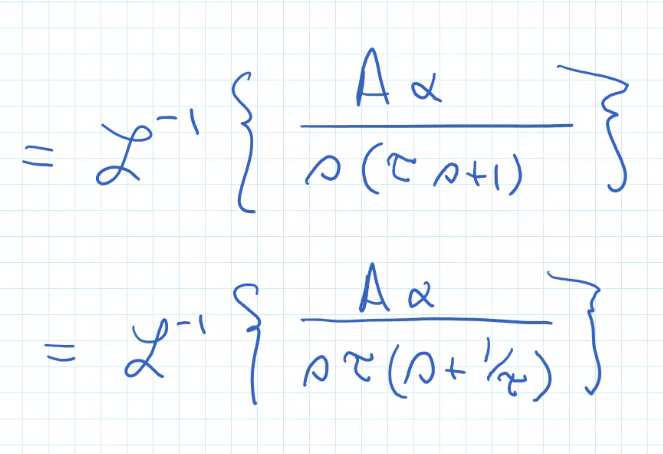 = ℒ⁻¹ { Aα / s(τs+1) }
= ℒ⁻¹ { Aα / sτ(s+1/τ) }